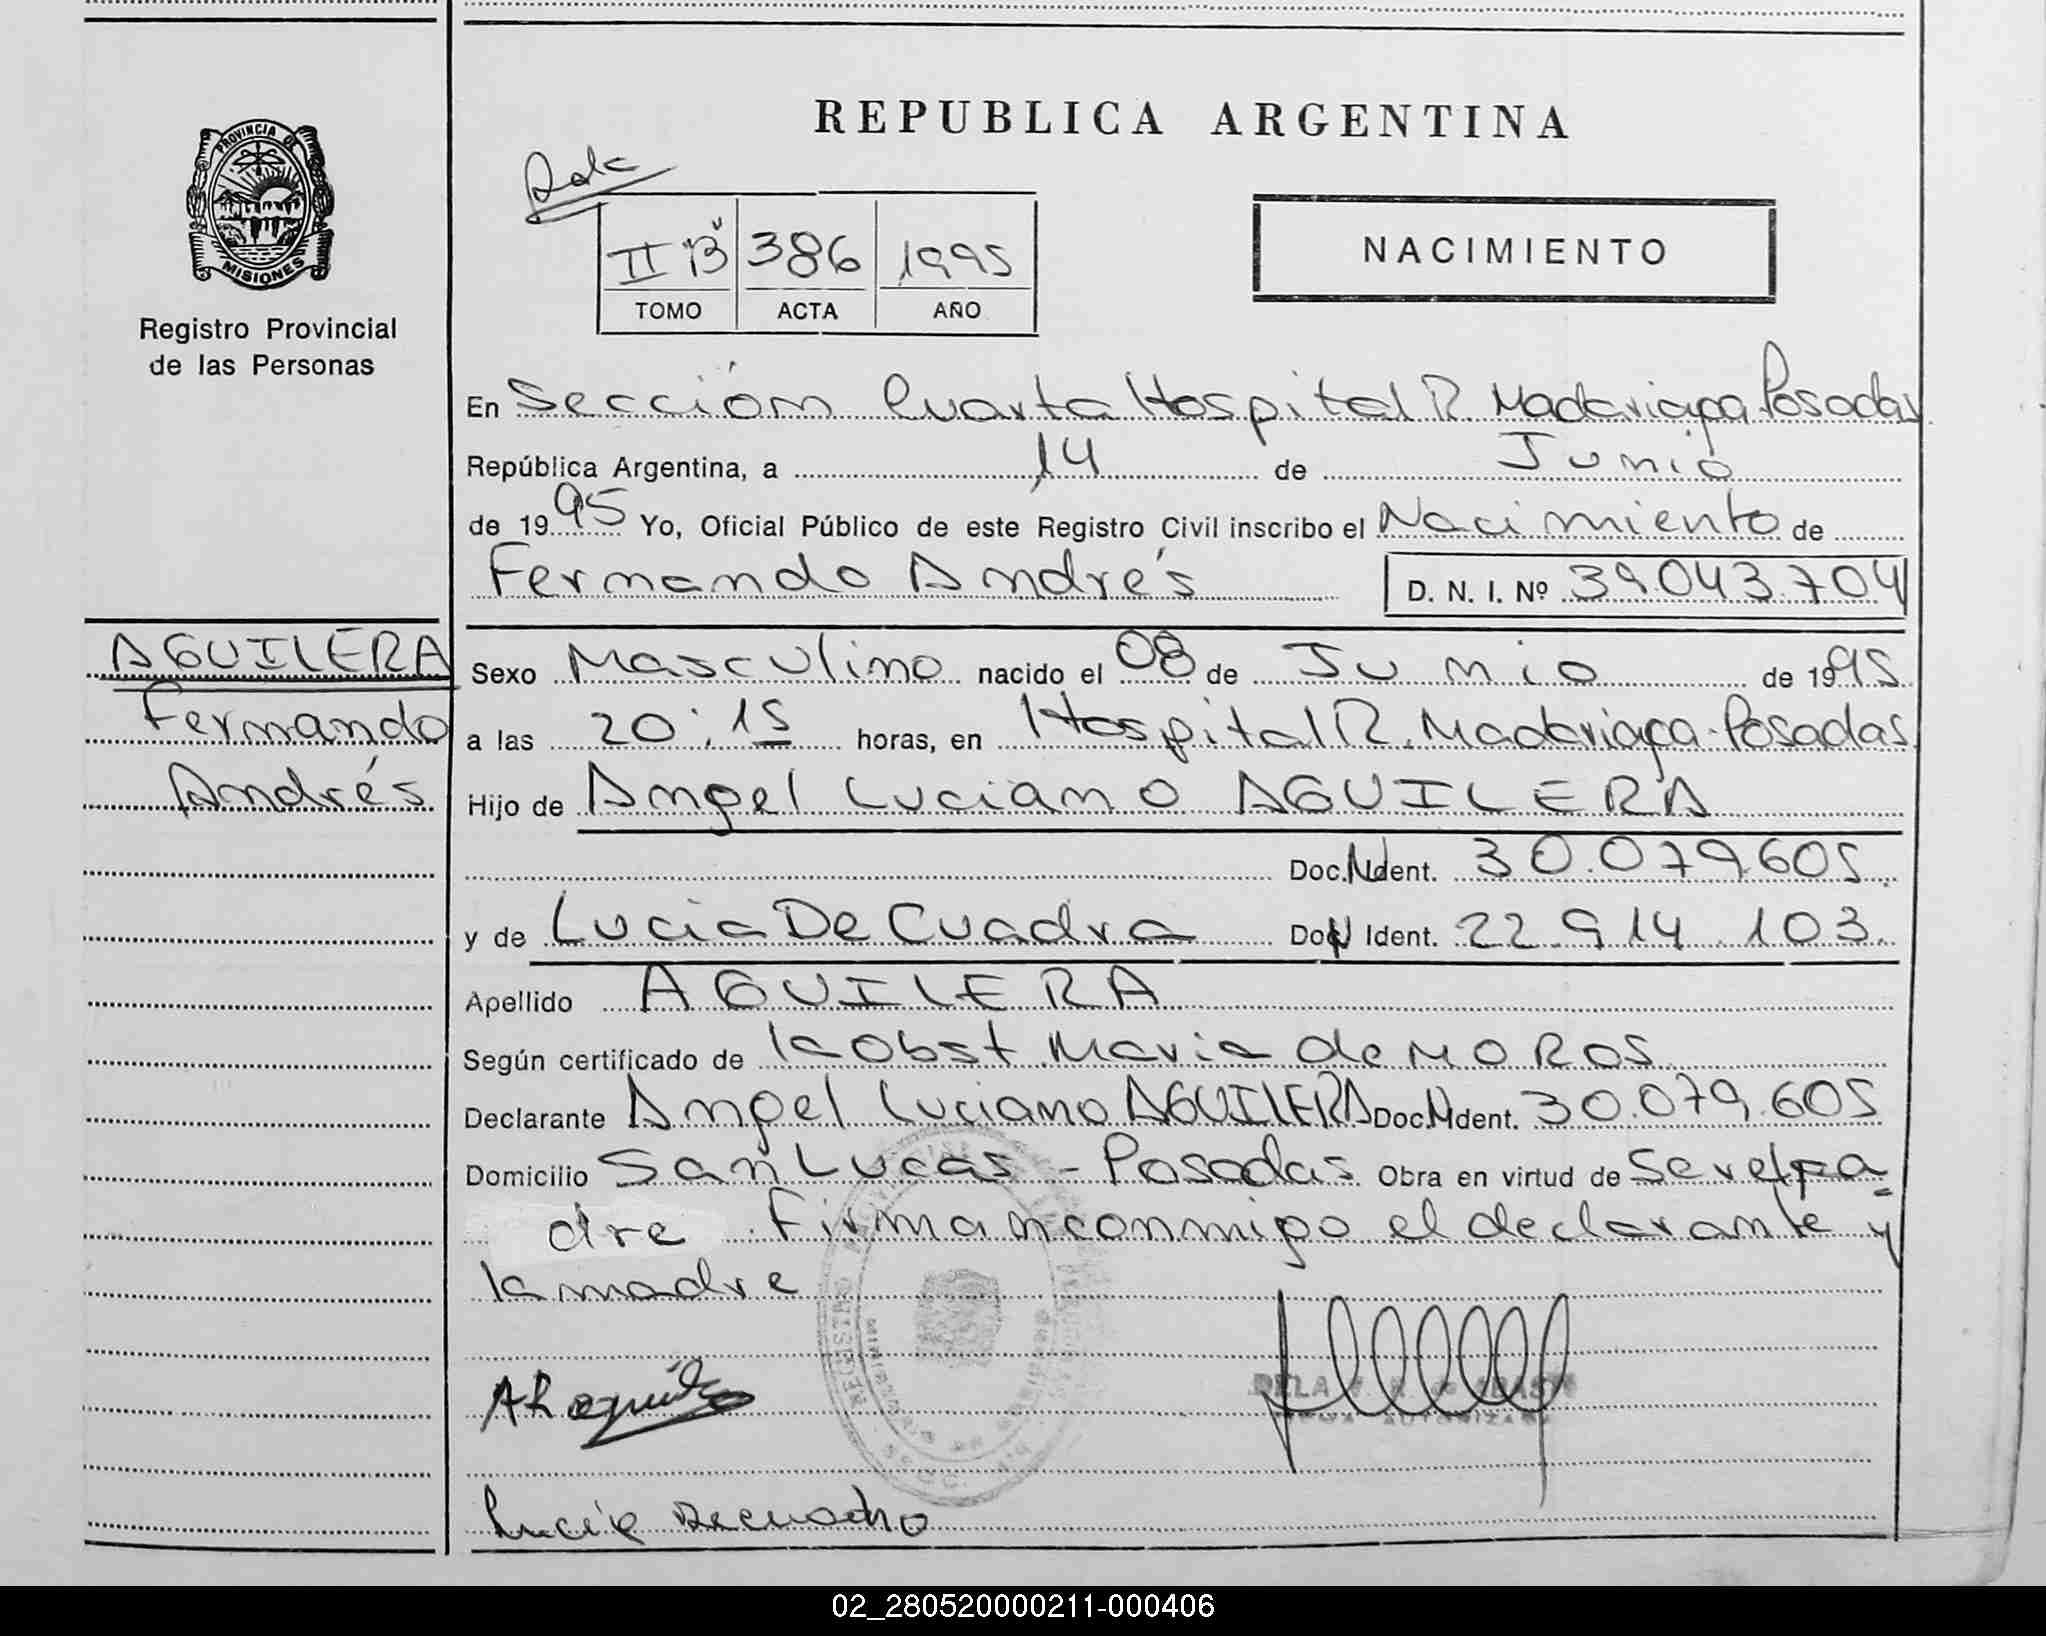 REPUBLICA ARGENTINA
PROVINCIA DE
MISIONES
Registro Provincial
de las Personas
II "B" 386 1995
TOMO ACTA AÑO
NACIMIENTO
En Sección Cuarta Hospital R. Madariaga Posadas
República Argentina, a 14 de Junio
de 1995 Yo, Oficial Público de este Registro Civil inscribo el Nacimiento de
Fernando Andrés D. N. I. Nº 39.043.704
AGUILERA
Fernando
Andrés
Sexo Masculino nacido el 08 de Junio de 1995
a las 20:15 horas, en Hospital R. Madariaga-Posadas
Hijo de Angel Luciano AGUILERA
Doc. Ident. 30.079.605
y de Lucia De Cuadra Doc. Ident. 22.914.103
Apellido AGUILERA
Según certificado de la Obst. Maria de MOROS
Declarante Angel Luciano AGUILERA Doc. Ident. 30.079.605
Domicilio San Lucas - Posadas Obra en virtud de Ser el pa=
dre Firman conmigo el declarante y
la madre
REGISTRO
Lucia
02_280520000211-000406